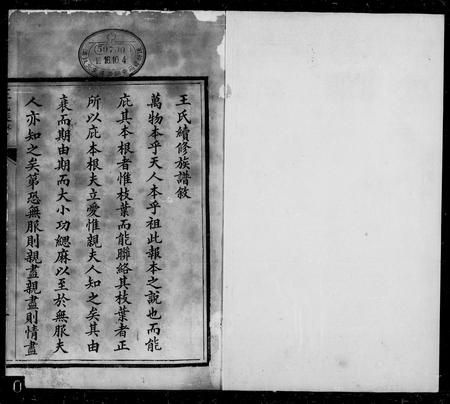 王氏續修族譜敘
萬物本乎天人本乎祖此報本之說也而能
庇其本根者惟枝葉而能聯絡其枝葉者正
所以庇本根夫立愛惟親夫人知之矣其由
衰而期由期而大小功緦麻以至於無服夫
人亦知之矣第恐無服則親盡親盡則情盡
50700
16.10.4